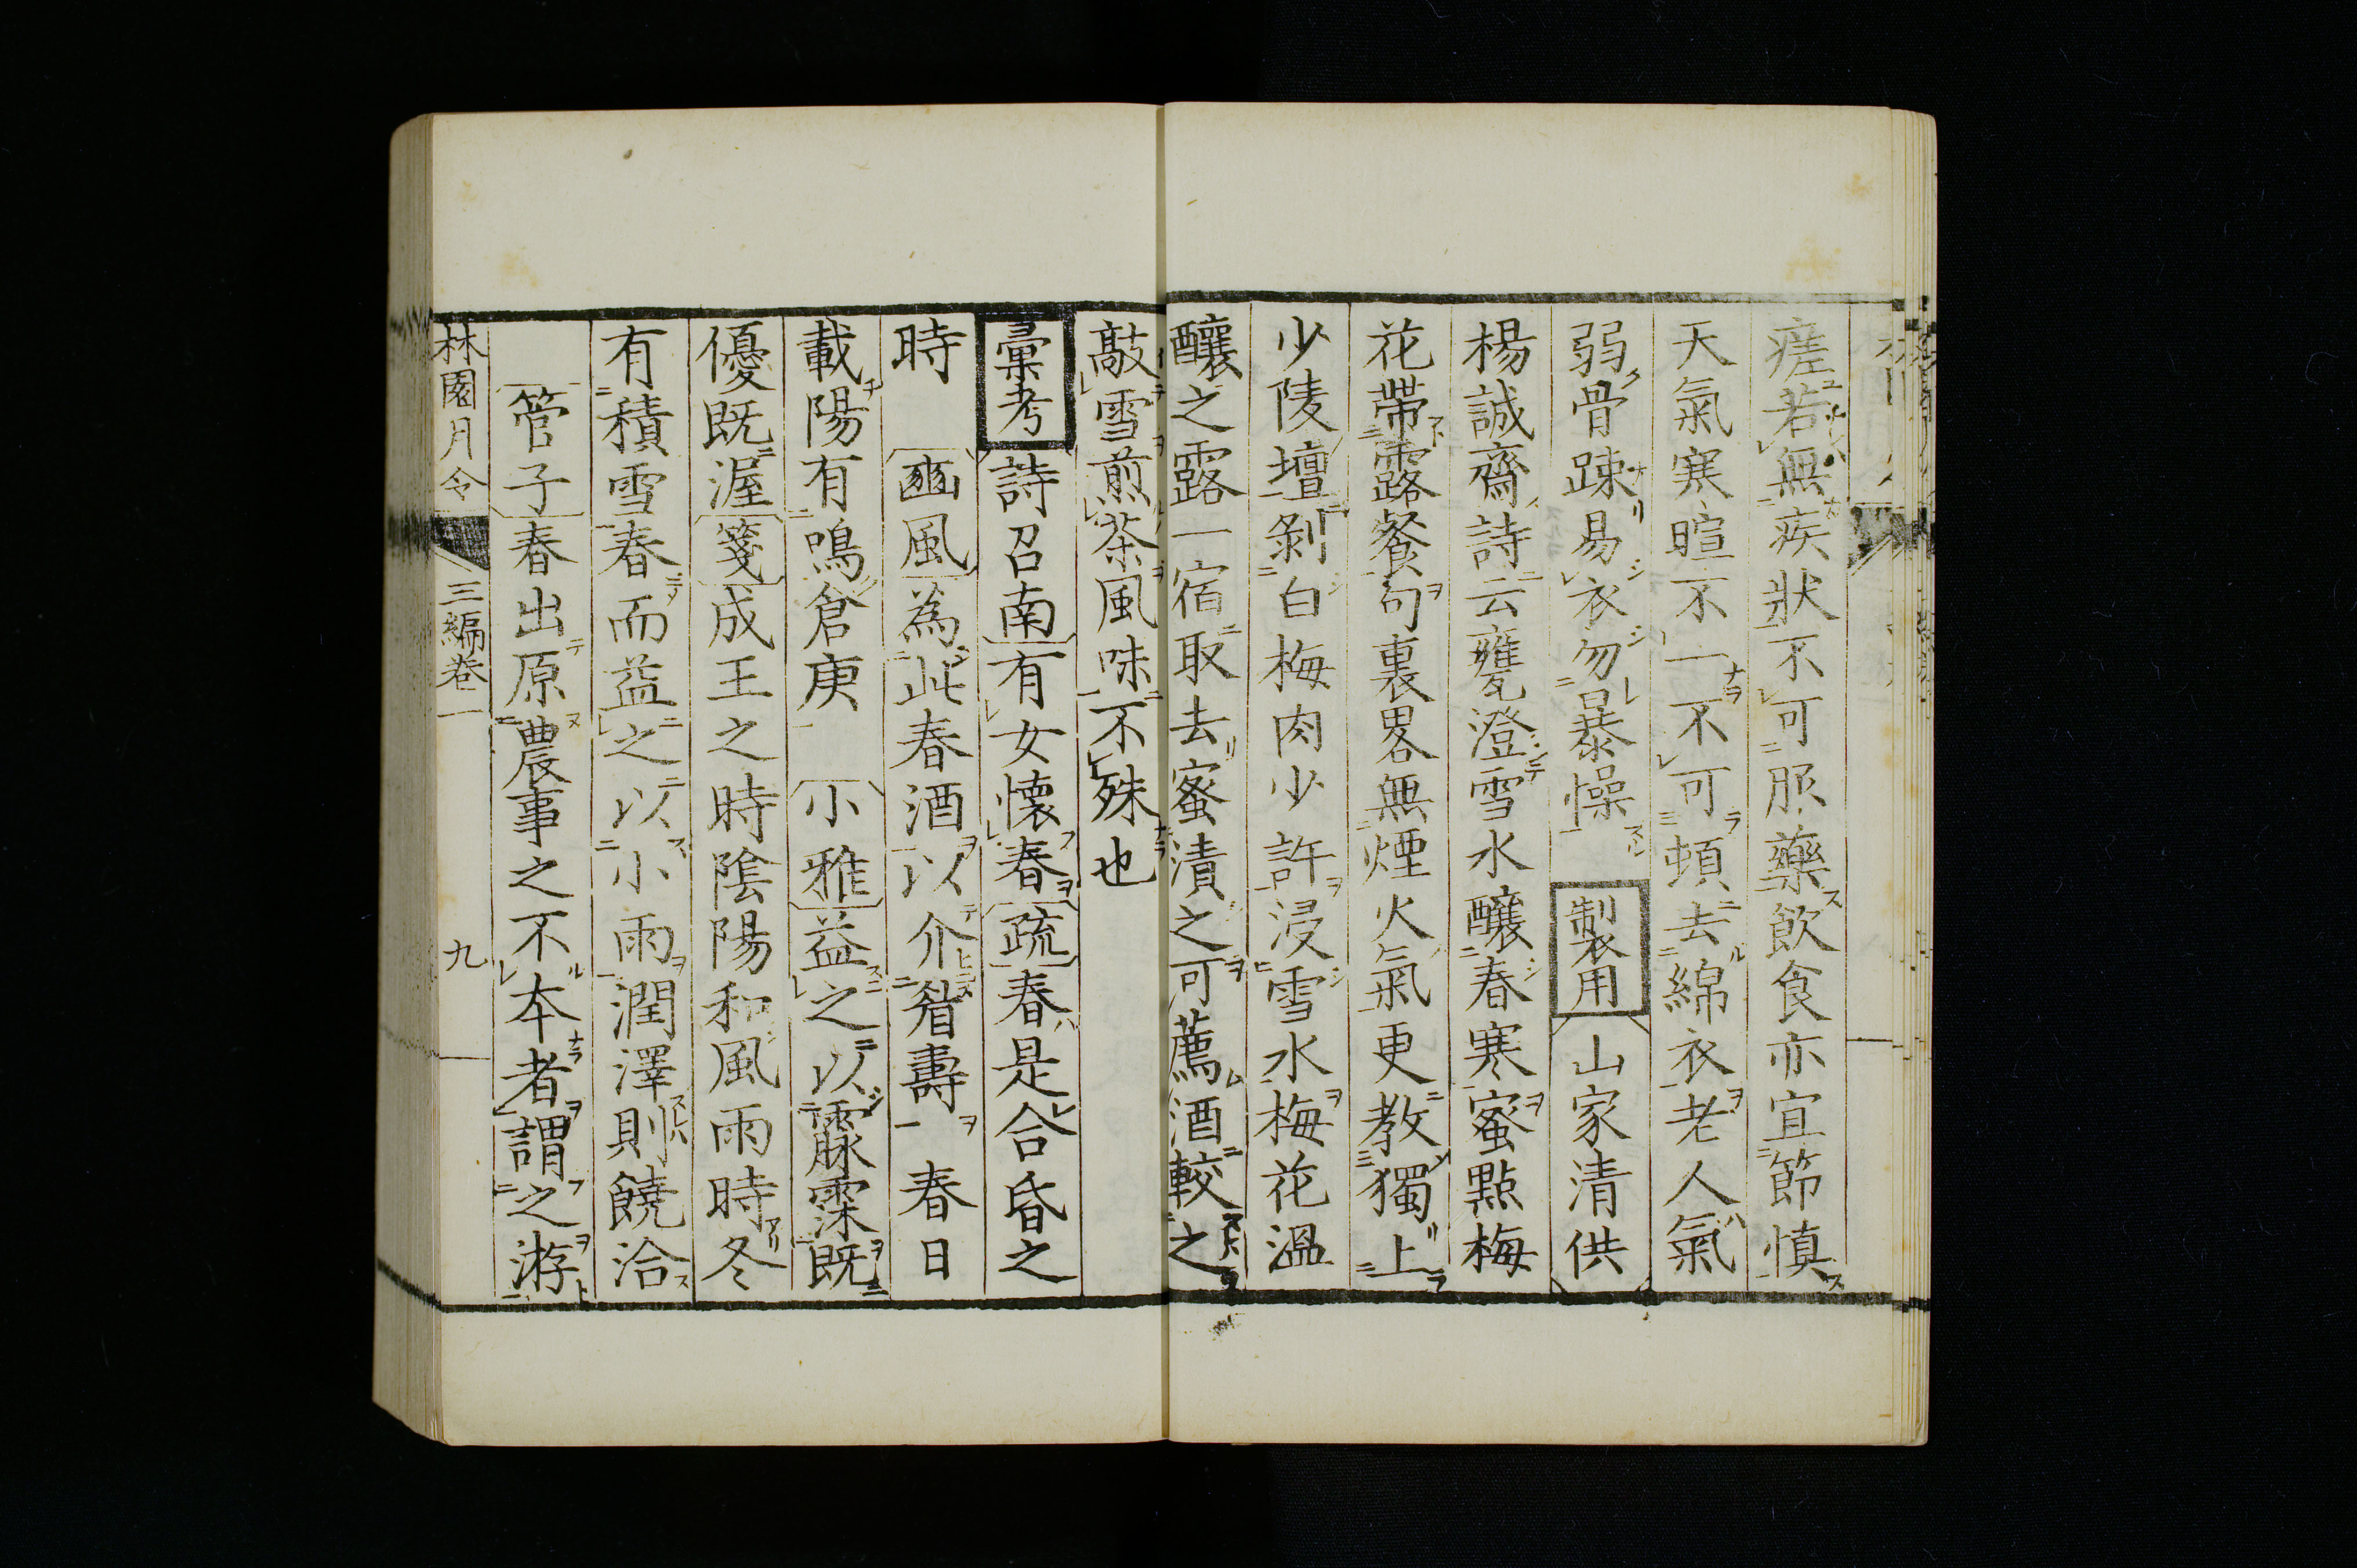 瘥若無疾狀不可服藥飲食亦宜節愼
天氣寒暄不一不可頓去綿衣老人氣
弱骨踈易衣勿暴懆 製用 山家清供
楊誠齋詩云甕澄雪水釀春寒蜜點梅
花帶露餐句裏畧無煙火氣更教獨上
少陵壇剝白梅肉少許浸雪水梅花溫
釀之露一宿取去蜜漬之可薦酒較之
敲雪煎茶風味不殊也
彙考 詩召南有女懷春疏春是合昏之
時 豳風為此春酒以介眉壽 春日
載陽有鳴倉庚 小雅益之以霡霂既
優既渥箋成王之時陰陽和風雨時冬
有積雪春而益之以小雨潤澤則饒洽
管子春出原農事之不本者謂之游
林園月令 三編卷一 九